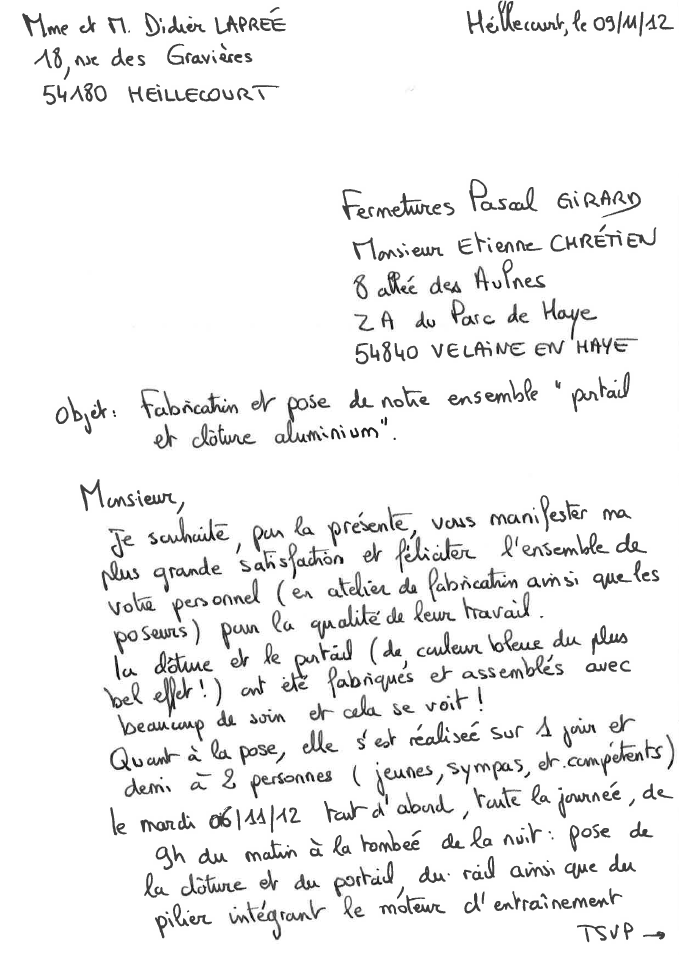 Mme et M. Didier LAPREÉ
18, rue des Gravières
54180 HEILLECOURT
Héllecourt, le 09/11/12
Fermetures Pascal GIRARD
Monsieur Etienne CHRÉTIEN
8 allée des Aulnes
ZA du Parc de Haye
54840 VELAINE EN HAYE
Objet: Fabrication et pose de notre ensemble "portail
et clôture aluminium".
Monsieur,
Je souhaite, par la présente, vous manifester ma
plus grande satisfaction et féliciter l'ensemble de
votre personnel (en atelier de fabrication ainsi que les
poseurs) pour la qualité de leur travail.
la clôture et le portail (de couleur bleue du plus
bel effet!) ont été fabriqués et assemblés avec
beaucoup de soin et cela se voit!
Quant à la pose, elle s'est réalisée sur 1 jour et
demi à 2 personnes (jeunes, sympas, et compétents)
le mardi 06/11/12 tout d'abord, toute la journée, de
9h du matin à la tombée de la nuit: pose de
la clôture et du portail, du rail ainsi que du
pilier intégrant le moteur d'entraînement
TSVP →